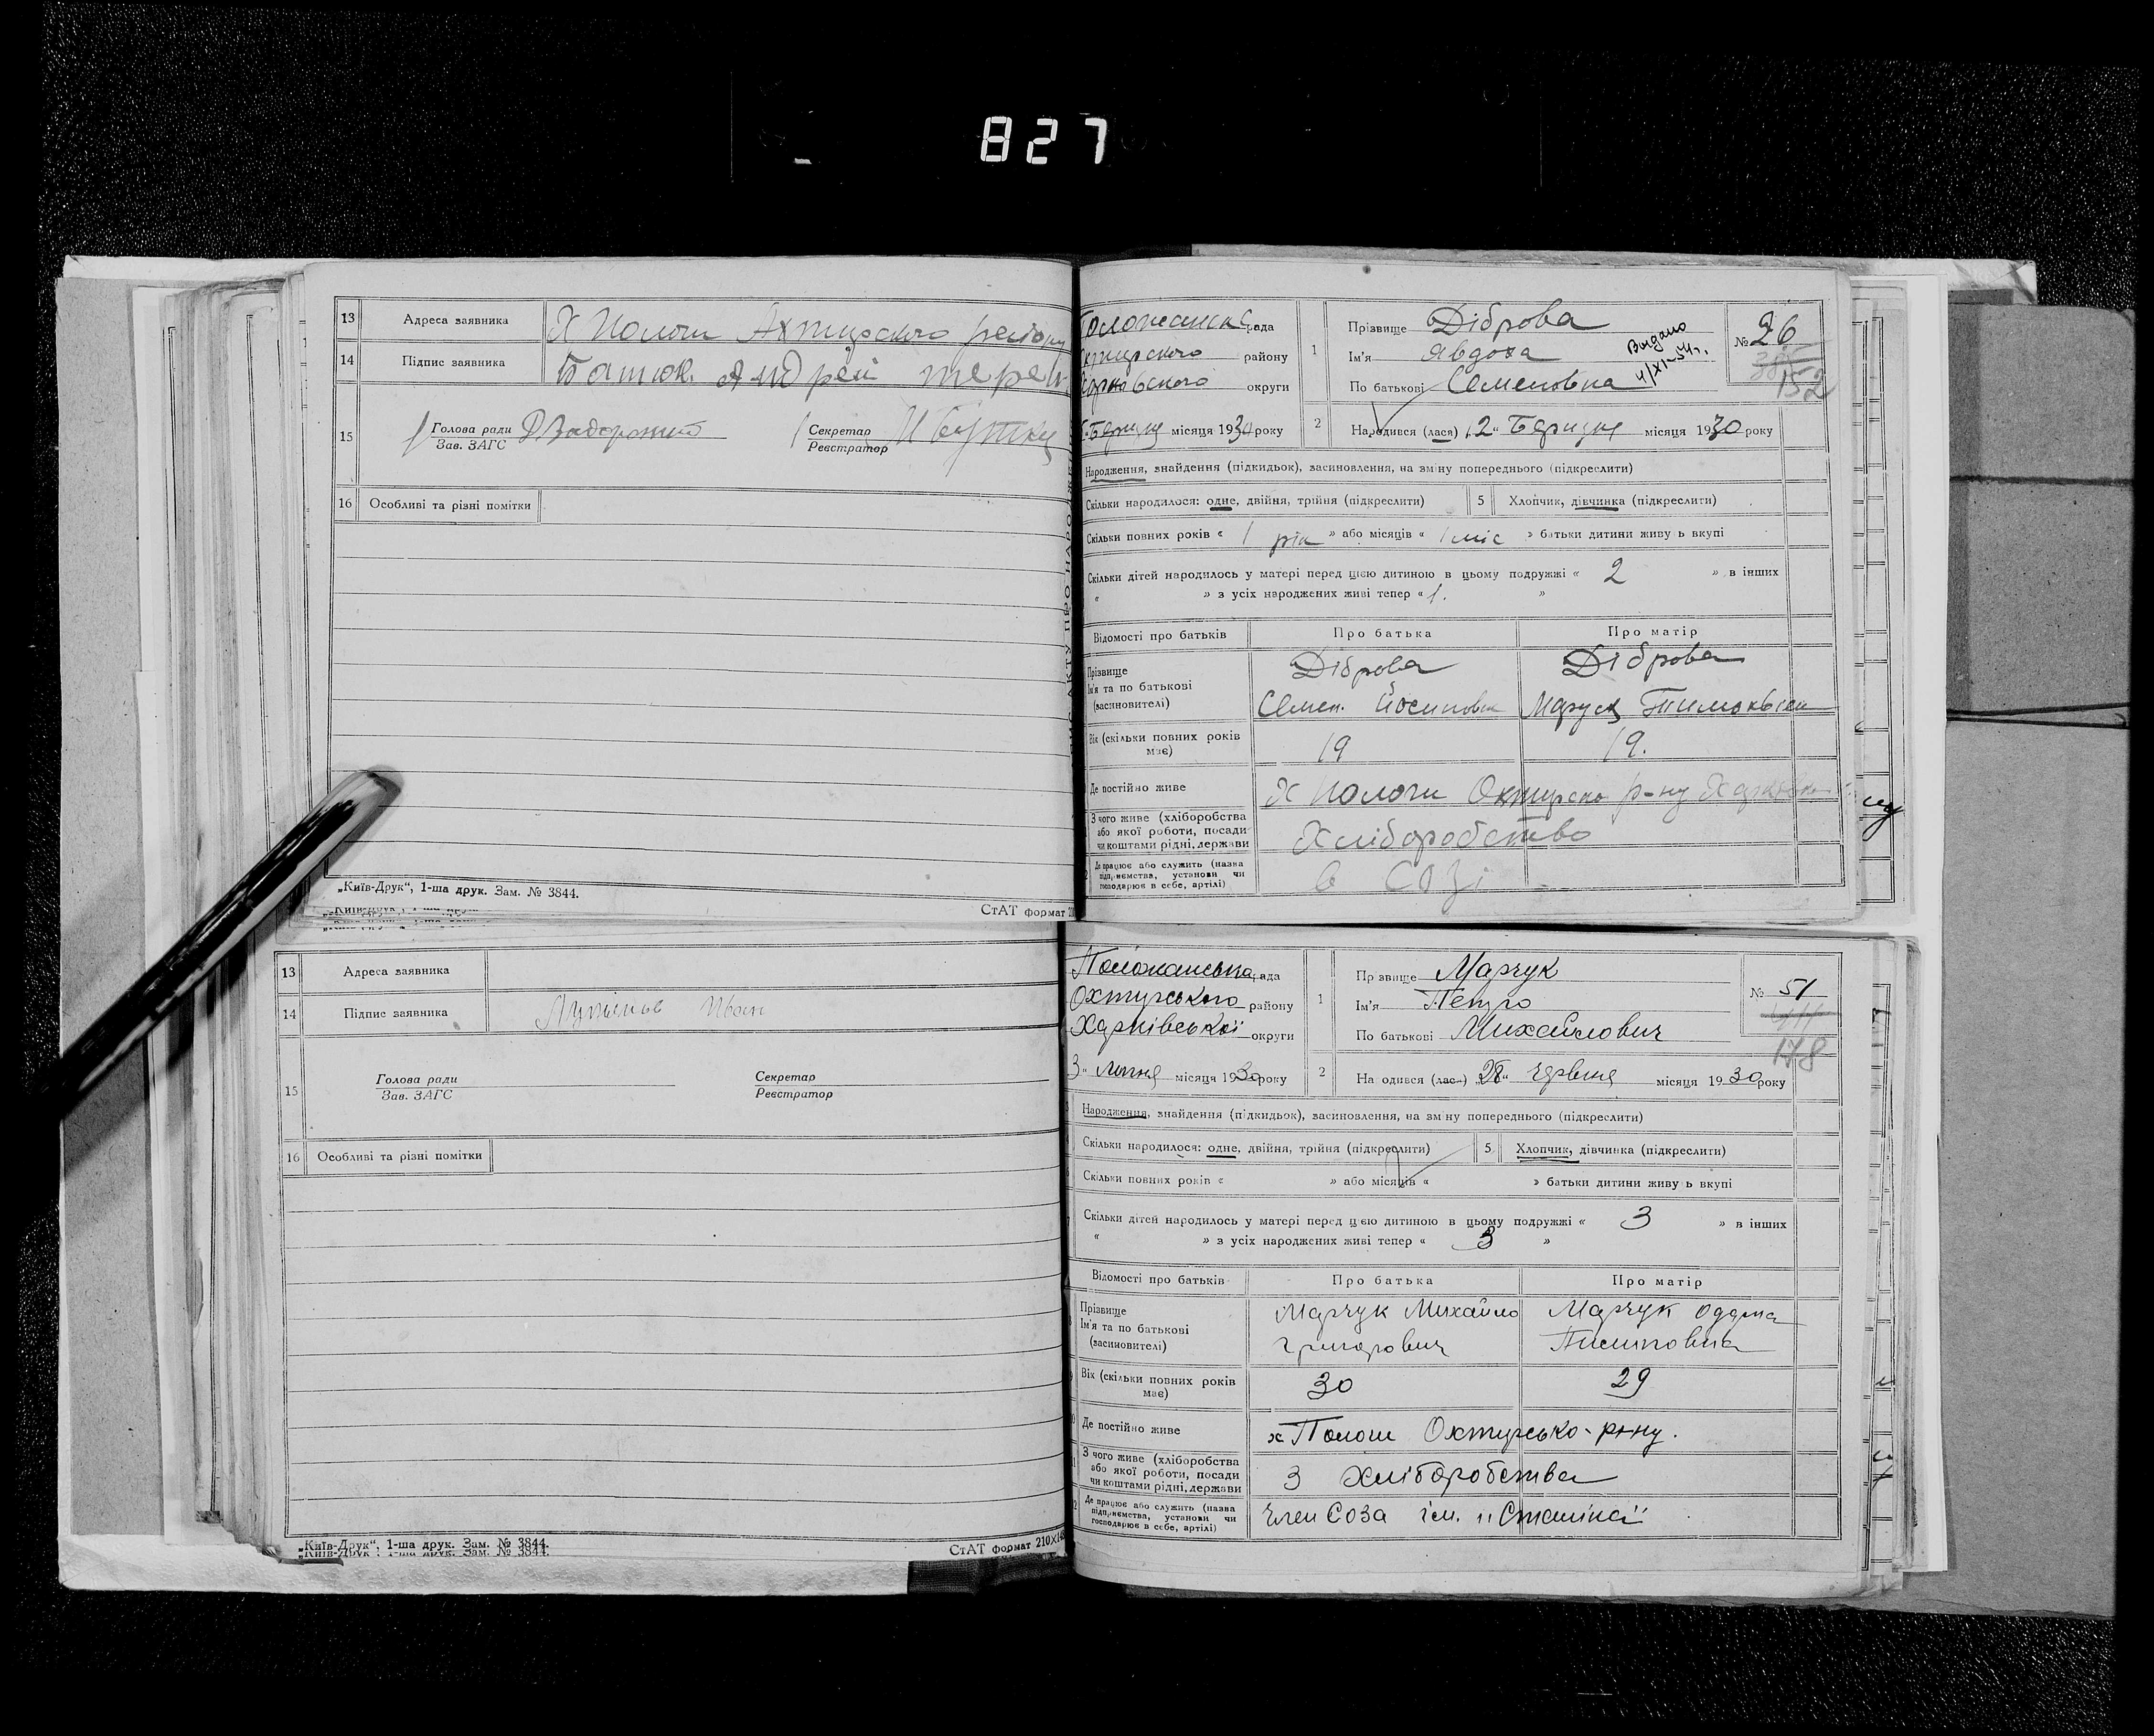 827
13 Адреса заявника Х Пологи Ахтирского району
14 Підпис заявника Батюк. Андрей
15 Голова ради Д Задорожний Секретар
Зав. ЗАГС Реєстратор
16 Особливі та різні помітки
„Київ-Друк“, 1-ша друк. Зам. № 3844.
СтАТ формат
рада
району
округи
місяця 1930 року
1 Прізвище Діброва
Ім'я Явдоха
По батькові Семеновна
Видано
4/XI-54г.
№ 26
385
152
2 Народився (лася) „2“ Березня місяця 1930 року
Народження, знайдення (підкидьок), засиновлення, на зміну попереднього (підкреслити)
Скільки народилося: одне, двійня, трійня (підкреслити) 5 Хлопчик, дівчинка (підкреслити)
Скільки повних років « 1 рік » або місяців « 1 міс » батьки дитини живу ь вкупі
Скільки дітей народилось у матері перед цією дитиною в цьому подружжі « 2 » в інших
« » з усіх народжених живі тепер « 1. »
Відомості про батьків Про батька Про матір
Прізвище Діброва Діброва
Ім'я та по батькові
(засиновителі) Семен. Йосипович Маруся
Вік (скільки повних років 19 19.
має)
Де постійно живе Х Пологи р-ну
З чого живе (хліборобства
або якої роботи, посади Хліборобство
чи коштами рідні, держави
Де працює або служить (назва
підприємства, установи чи в СОЗі
господарює в себе, артілі)
13 Адреса заявника
14 Підпис заявника Иван
15 Голова ради Секретар
Зав. ЗАГС Реєстратор
16 Особливі та різні помітки
„Київ-Друк“, 1-ша друк. Зам. № 3844.
„Київ-Друк“, 1-ша друк. Зам. № 3844.
СтАТ формат 210×148
Положанська рада
Охтирського району
Харківської округи
3“ Липня місяця 1930 року
1 Пр звище Марчук
Ім'я Петро
По батькові Михайлович
№ 51
178
2 На одився (лася) „28“ Червня місяця 1930 року
Народження, знайдення (підкидьок), засиновлення, на зміну попереднього (підкреслити)
Скільки народилося: одне, двійня, трійня (підкреслити) 5 Хлопчик, дівчинка (підкреслити)
Скільки повних років « » або місяців « » батьки дитини живу ь вкупі
Скільки дітей народилось у матері перед цією дитиною в цьому подружжі « 3 » в інших
« » з усіх народжених живі тепер « 3 »
Відомості про батьків Про батька Про матір
Прізвище Марчук Михайло Марчук
Ім'я та по батькові
(засиновителі) Григорович
Вік (скільки повних років 30 29
має)
Де постійно живе х Пологи Охтирсько-р-ну.
З чого живе (хліборобства
або якої роботи, посади З хліборобства
чи коштами рідні, держави
Де працює або служить (назва
підприємства, установи чи член Соза ім.
господарює в себе, артілі)